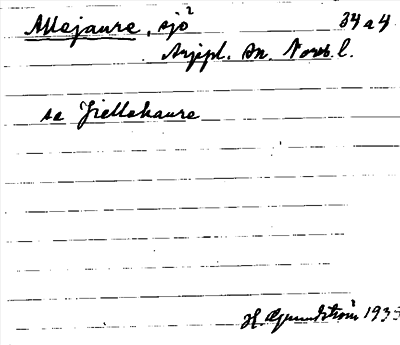 Allejaure, sjö² 34a4
Arjepl. sn. Norrb. l.
se Jiellokaure
H. Grundström 1935